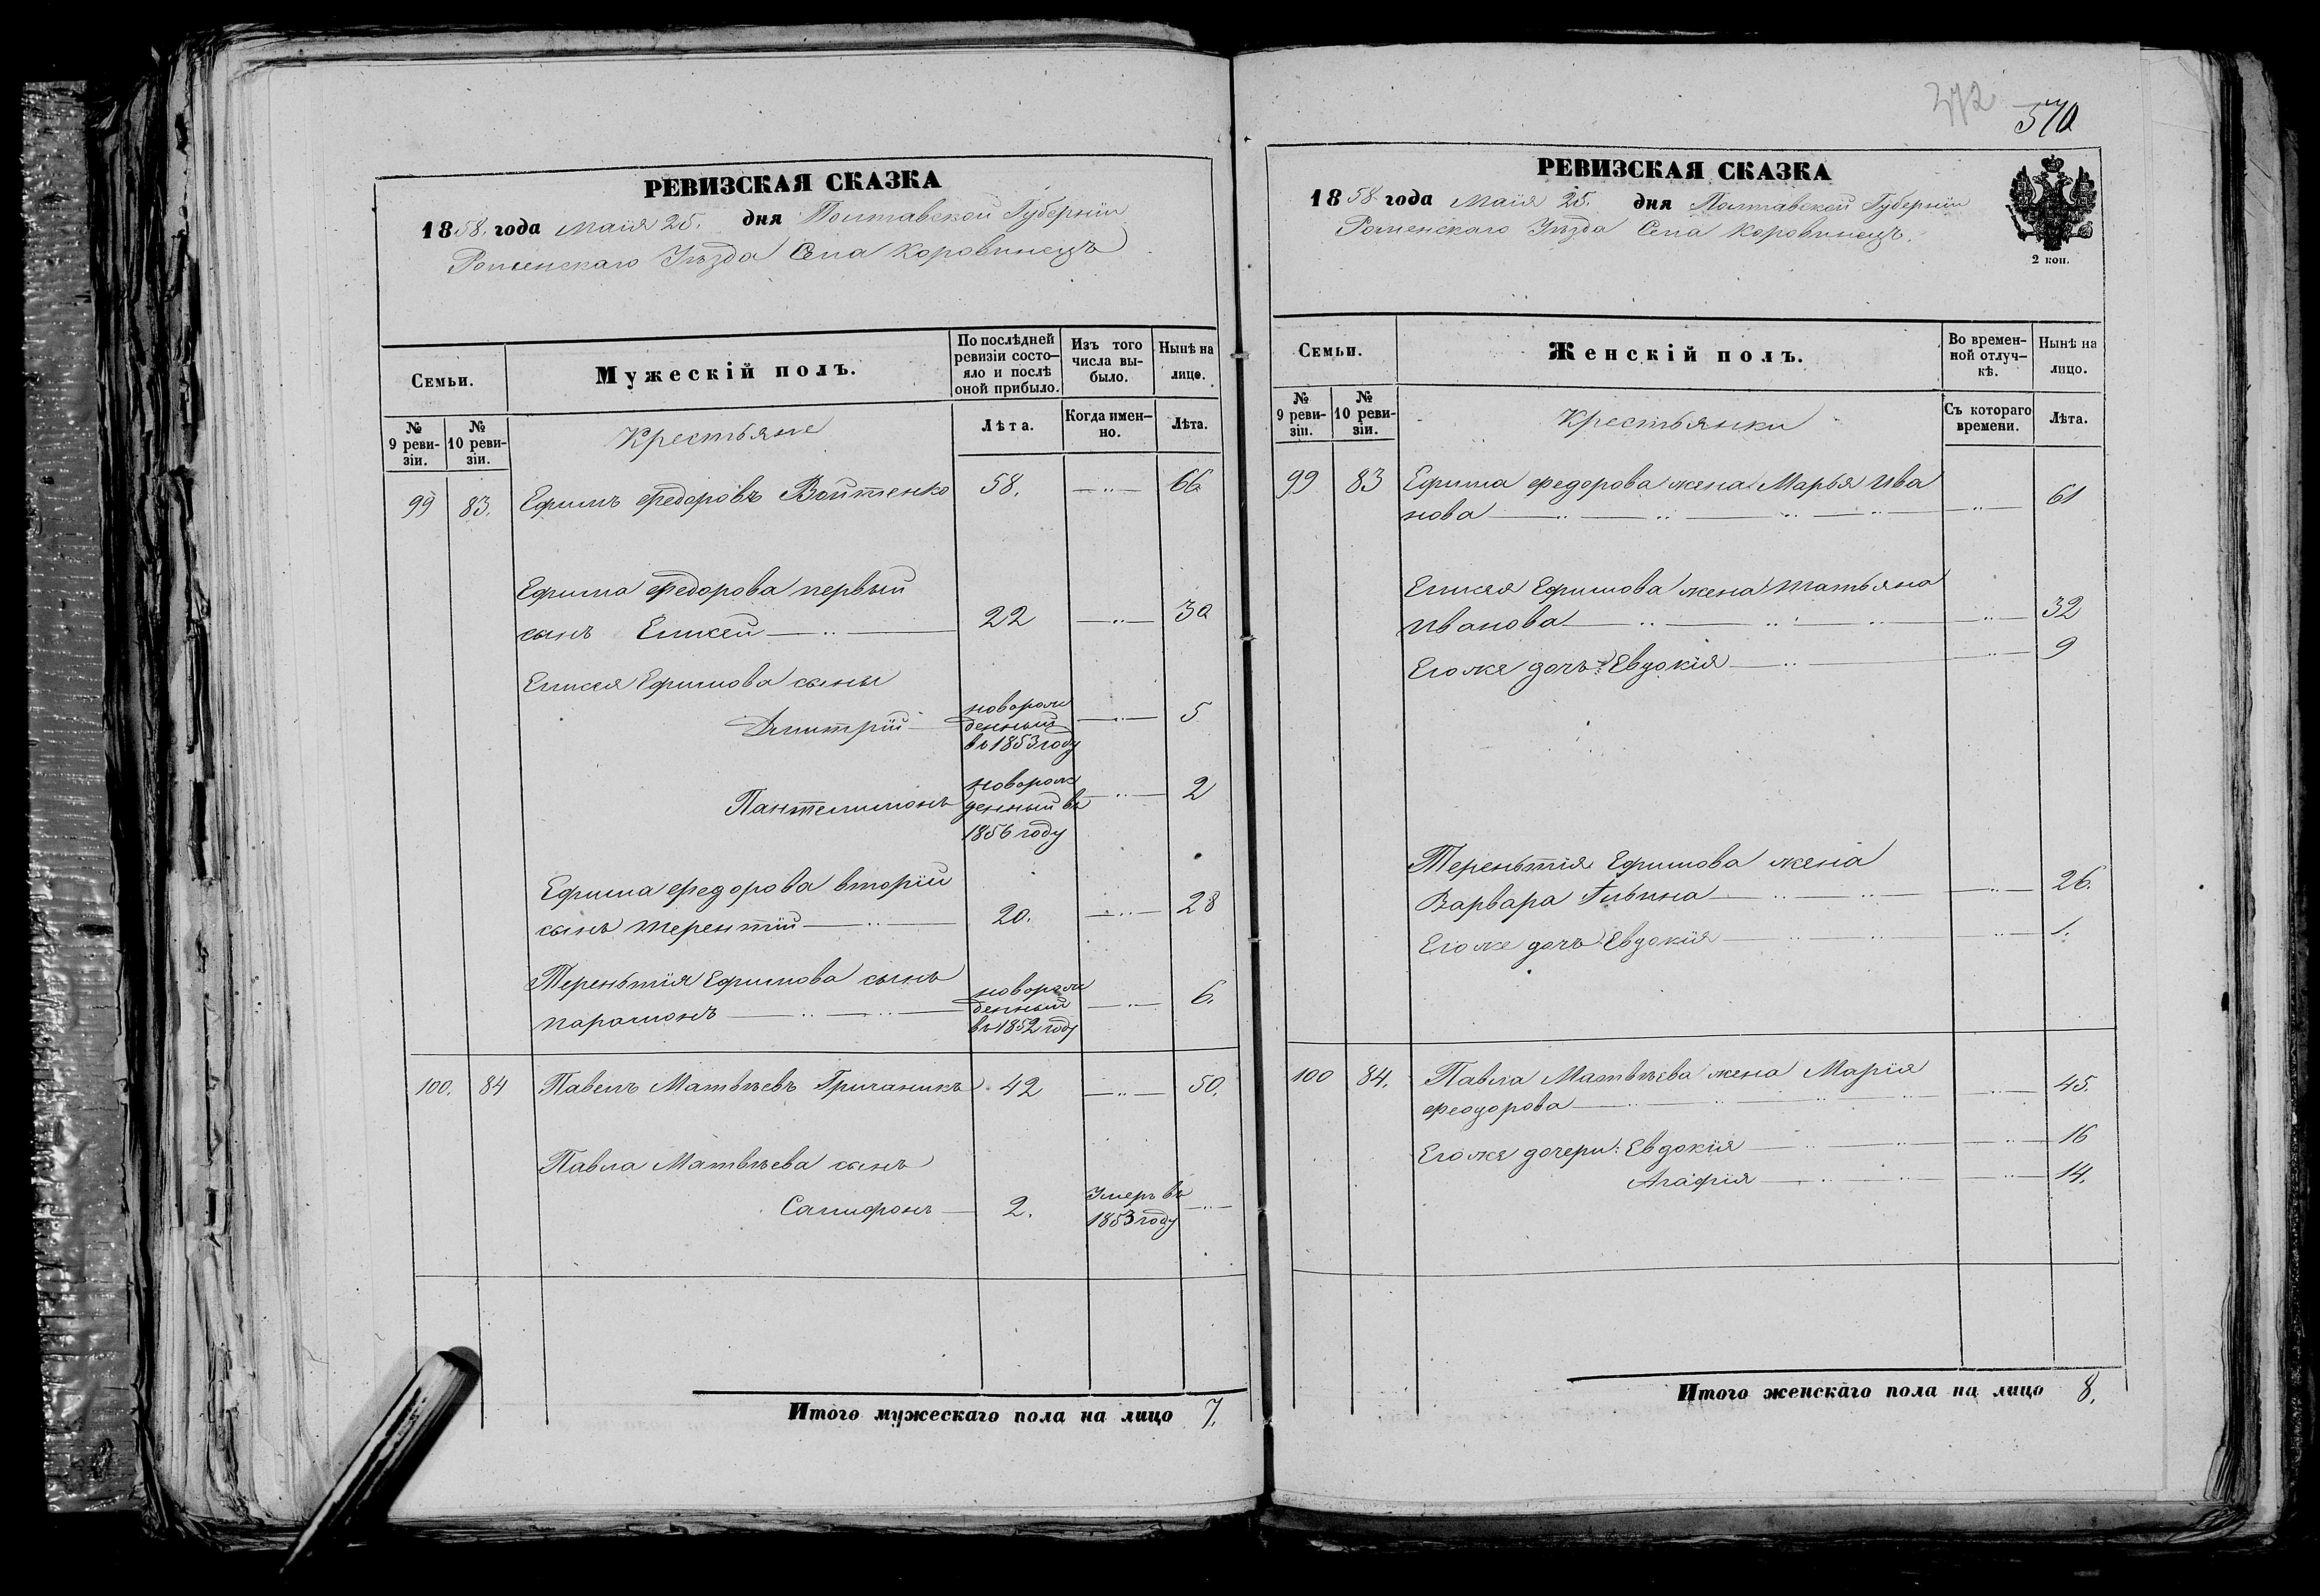 РЕВИЗСКАЯ СКАЗКА
1858. года Маія 25. дня Полтавской Губерніи
Роменскаго Уѣзда Села Коровинецъ
Семьи.
Мужескій полъ.
По послѣдней ревизіи состо-
яло и послѣ
оной прибыло.
Изъ того
числа вы-
было.
Нынѣ на
лице.
№ 9 реви-
зіи.
№ 10 реви-
зіи.
Крестьяне
Лѣта.
Когда имен-
но.
Лѣта.
99 83. Ефимъ Федоровъ Войтенко 58. —"— 66
Ефима Федорова первый
сынъ Елисей —"— 22 —"— 30
Елисея Ефимова сыны
Дмитрій новорож
денный
въ 1853 году —"— 5
Пантелимонъ новорож
денный въ
1856 году —"— 2
Ефима Федорова вторій
сынъ Терентій —"— 20. —"— 28
Терентія Ефимова сынъ
Парамонъ —"—"— новорож
денный
въ 1852 году —"— 6.
100. 84 Павелъ Матвѣевъ Гричаникъ 42 —"— 50.
Павла Матвѣева сынъ
Самифонъ — 2. Умеръ въ
1853 году —"—
Итого мужескаго пола на лицо 7.
372
570
РЕВИЗСКАЯ СКАЗКА
1858 года Маія 25. дня Полтавской Губерніи
Роменскаго Уѣзда Села Коровинецъ.
2 коп.
Семьи.
Женскій полъ.
Во времен-
ной отлуч-
кѣ.
Нынѣ на
лицо.
№ 9 реви-
зіи.
№ 10 реви-
зіи.
Крестьянки
Съ котораго
времени.
Лѣта.
99 83 Ефима Федорова жена Марья Ива
нова —"—"—"—"— —"— 61
Елисея Ефимова жена Татьяна
Иванова —"—"—"— —"— 32
Его же дочь: Евдокія —"— —"— 9
Терентія Ефимова жена
Варвара Ильина —"—"— —"— 26.
Его же дочь Евдокія —"—"— —"— 1.
100 84. Павла Матвѣева жена Марія
Феодорова —"—"—"— —"— 45.
Его же дочери: Евдокія —"—"— —"— 16
Агафія —"—"— —"— 14.
Итого женскаго пола на лицо 8.